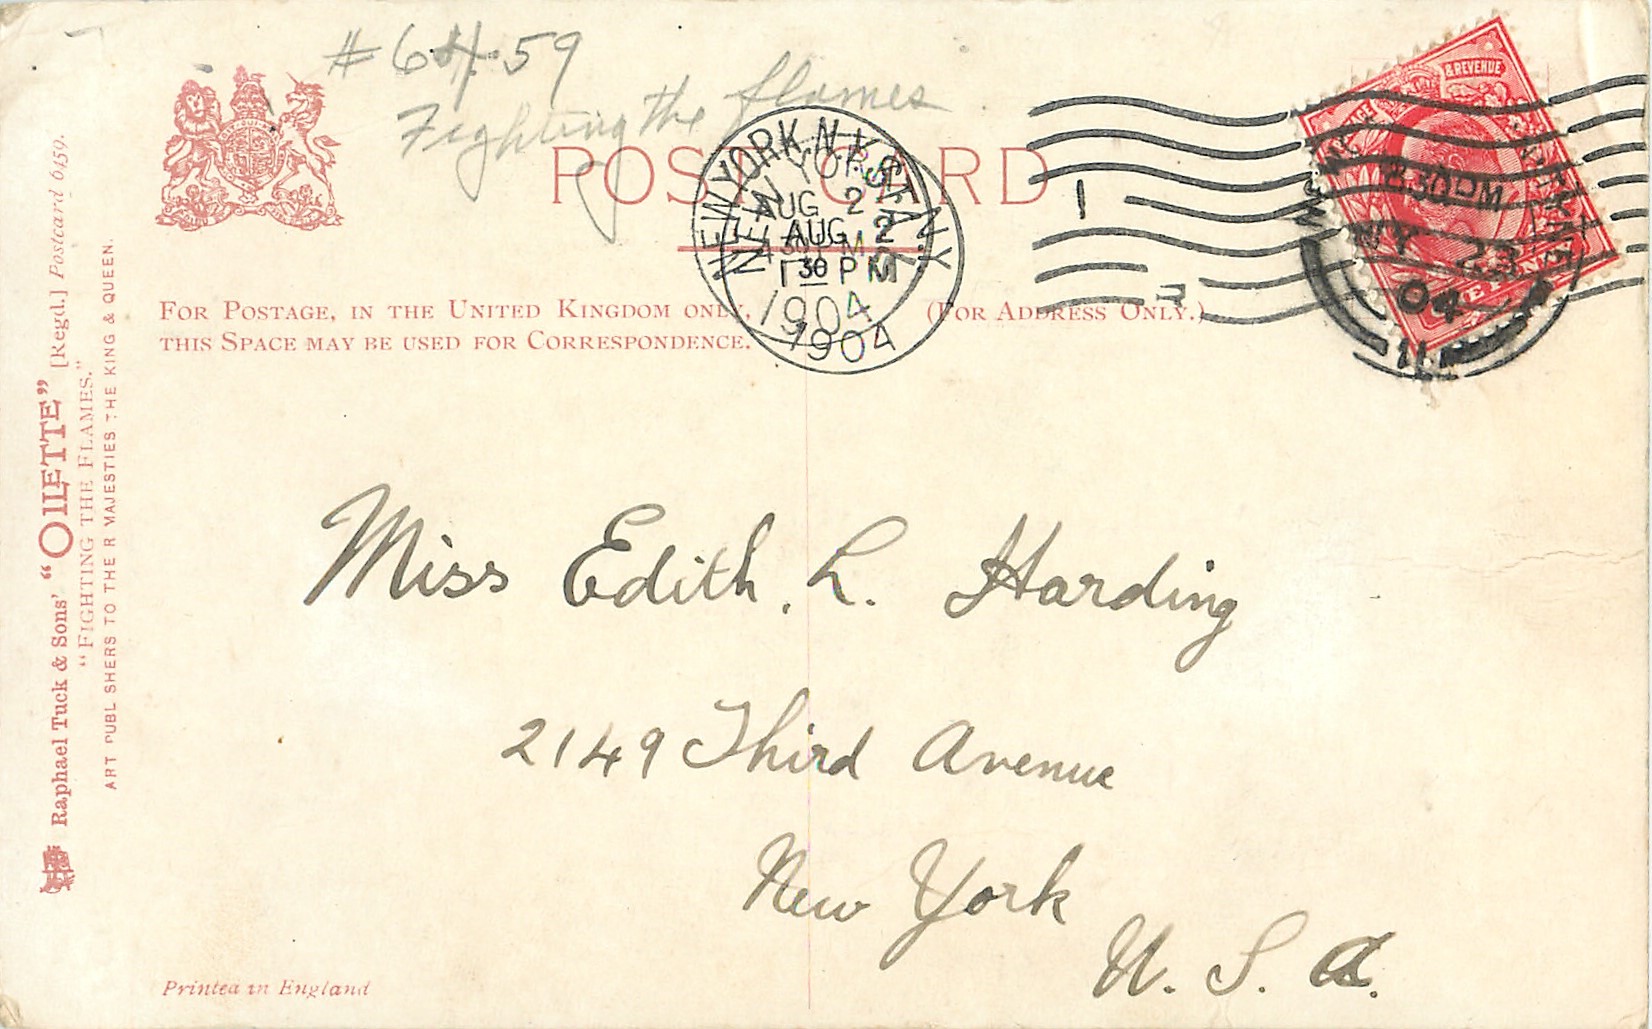 # 6459
Fighting the flames
POST CARD
FOR POSTAGE, IN THE UNITED KINGDOM ONLY,
THIS SPACE MAY BE USED FOR CORRESPONDENCE.
(FOR ADDRESS ONLY.)
NEW YORK, N.Y. STA.
NEW YORK N.Y.
AUG 2
AUG 2
1 30 PM
1904
1904
1
& REVENUE
8.30 PM
23
04
Raphael Tuck & Sons' "OILETTE" [Regd.] Postcard 6459.
"FIGHTING THE FLAMES."
ART PUBL SHERS TO THE R MAJESTIES THE KING & QUEEN.
Miss Edith. L. Harding
2149 Third Avenue
New York
U. S. A.
Printed in England